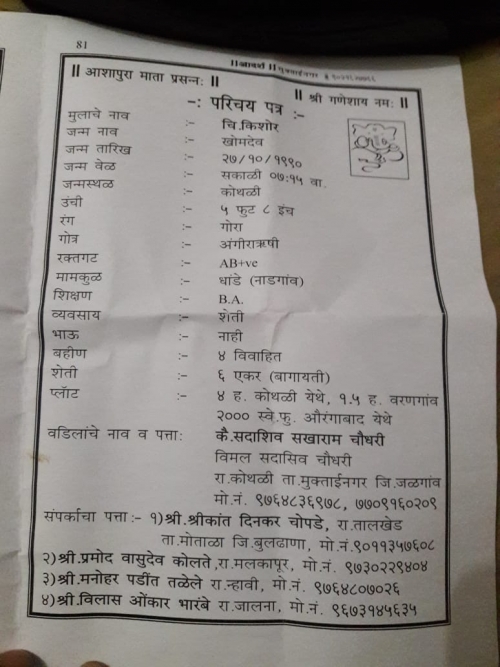 81
॥आदर्श॥ मुक्ताईनगर
॥ आशापुरा माता प्रसन्नः ॥
॥ श्री गणेशाय नमः ॥
-: परिचय पत्र :-
मुलाचे नाव :- चि.किशोर
जन्म नाव :- खोमदेव
जन्म तारिख :- २७/१०/१९९०
जन्म वेळ :- सकाळी ०७:१५ वा.
जन्मस्थळ :- कोथळी
उंची :- ५ फुट ८ इंच
रंग :- गोरा
गोत्र :- अंगीराऋषी
रक्तगट :- AB+ve
मामकुळ :- धांडे (नाडगांव)
शिक्षण :- B.A.
व्यवसाय :- शेती
भाऊ :- नाही
बहीण :- ४ विवाहित
शेती :- ६ एकर (बागायती)
प्लॉट :- ४ ह. कोथळी येथे, १.५ ह. वरणगांव
२००० स्वे.फु. औरंगाबाद येथे
वडिलांचे नाव व पत्ताः कै.सदाशिव सखाराम चौधरी
विमल सदासिव चौधरी
रा.कोथळी ता.मुक्ताईनगर जि.जळगांव
मो.नं. ९७६४८३६९७८, ७७०९१६०२०९
संपर्काचा पत्ता:- १)श्री.श्रीकांत दिनकर चोपडे, रा.तालखेड
ता.मोताळा जि.बुलढाणा, मो.नं.९०११३५७६०८
२)श्री.प्रमोद वासुदेव कोलते,रा.मलकापूर, मो.नं. ९७३०२२९४०४
३)श्री.मनोहर पडींत तळेले रा.न्हावी, मो.नं. ९७६४८०७०२६
४)श्री.विलास ओंकार भारंबे रा.जालना, मो.नं. ९६७३१४५६३५